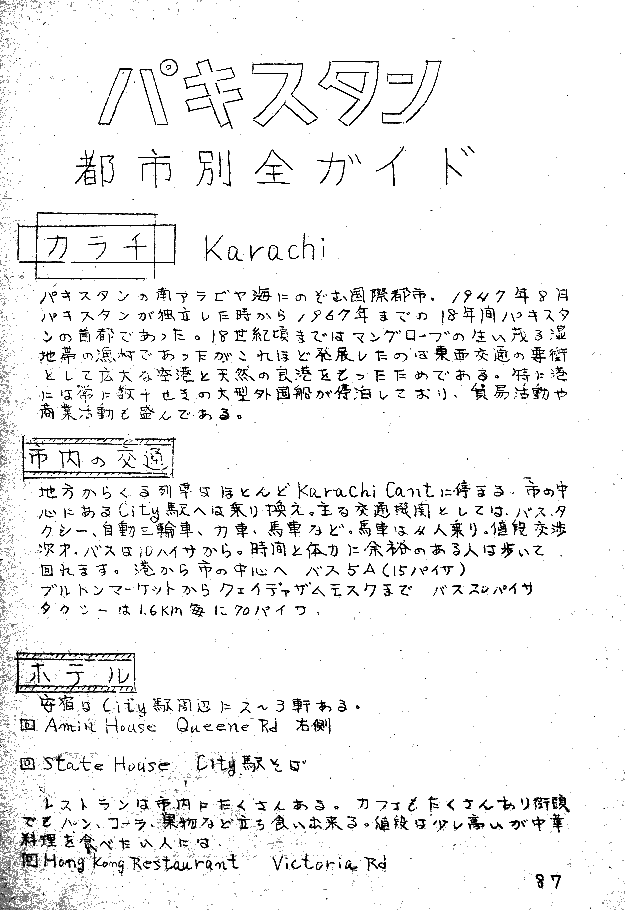 パキスタン
都市別全ガイド
カラチ Karachi
パキスタンの南アラビヤ海にのぞむ国際都市. 1947年8月
パキスタンが独立した時から1967年までの18年間パキスタ
ンの首都であった。18世紀頃まではマングローブの生い茂る湿
地帯の漁村であったがこれほど発展したのは東西交通の要衝
として広大な空港と天然の良港をもったためである。特に港
には常に数十せきの大型外国船が停泊しており、貿易活動や
商業活動も盛んである。
市内の交通
地方からくる列車はほとんどKarachi Cantに停まる. 市の中
心にあるCity駅へは乗り換え。主な交通機関としては、バス、タ
クシー、自動三輪車、力車、馬車など。馬車は4人乗り。値段交渉
次才. バスは10パイサから。時間と体力に余裕のある人は歩いて
回れます。港から市の中心へ バス5A(15パイサ)
ブルトンマーケットからクェイディァザムモスクまで バス20パイサ
タクシーは1.6Km毎に70パイサ.
ホテル
安宿はCity駅周辺に2〜3軒ある。
回 Amin House Queene Rd 右側
回 State House City駅そば
レストランは市内にたくさんある。カフェもたくさんあり街頭
でもパン、コーラ、果物など立ち食い出来る。値段は少し高いが中華
料理を食べたい人には.
回 Hong Kong Restaurant Victoria Rd
87